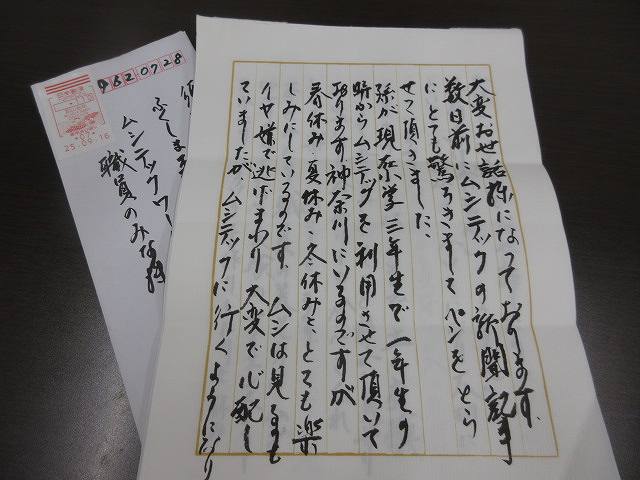 大変お世話様になっております。
数日前にムシテックの新聞記事
にとても驚ろきましてペンをとら
せて頂きました。
孫が現在小学三年生で一年生の
時からムシテックを利用させて頂いて
おります。神奈川にいるのですが
春休み、夏休み、冬休みと、とても楽
しみにしているのです。ムシは見るのも
イヤ嫌で逃げまわり大変で心配し
ていましたが、ムシテックに行くようになり
9620728
25.09.16
ふくしま
ムシテックワー
職員のみな様